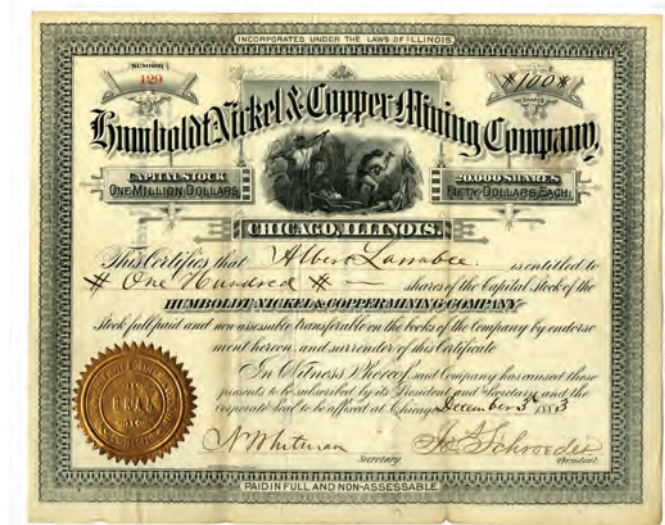 INCORPORATED UNDER THE LAWS OF ILLINOIS
NUMBER
129
*100*
SHARES
Humboldt Nickel & Copper Mining Company,
CAPITAL STOCK
ONE MILLION DOLLARS
20,000 SHARES
FIFTY DOLLARS EACH.
CHICAGO, ILLINOIS.
This Certifies that Albert Larrabee. is entitled to
# One Hundred # — shares of the Capital Stock of the
HUMBOLDT NICKEL & COPPER MINING COMPANY
Stock full paid and non assessable transferable on the books of the Company by endorse
ment hereon, and surrender of this Certificate
In Witness Whereof, said Company has caused these
presents to be subscribed by its President and Secretary and the
corporate Seal to be affixed at Chicago December 3d 1883
SEAL
N Whitman
Secretary
Schroeder
President
PAID IN FULL AND NON-ASSESSABLE